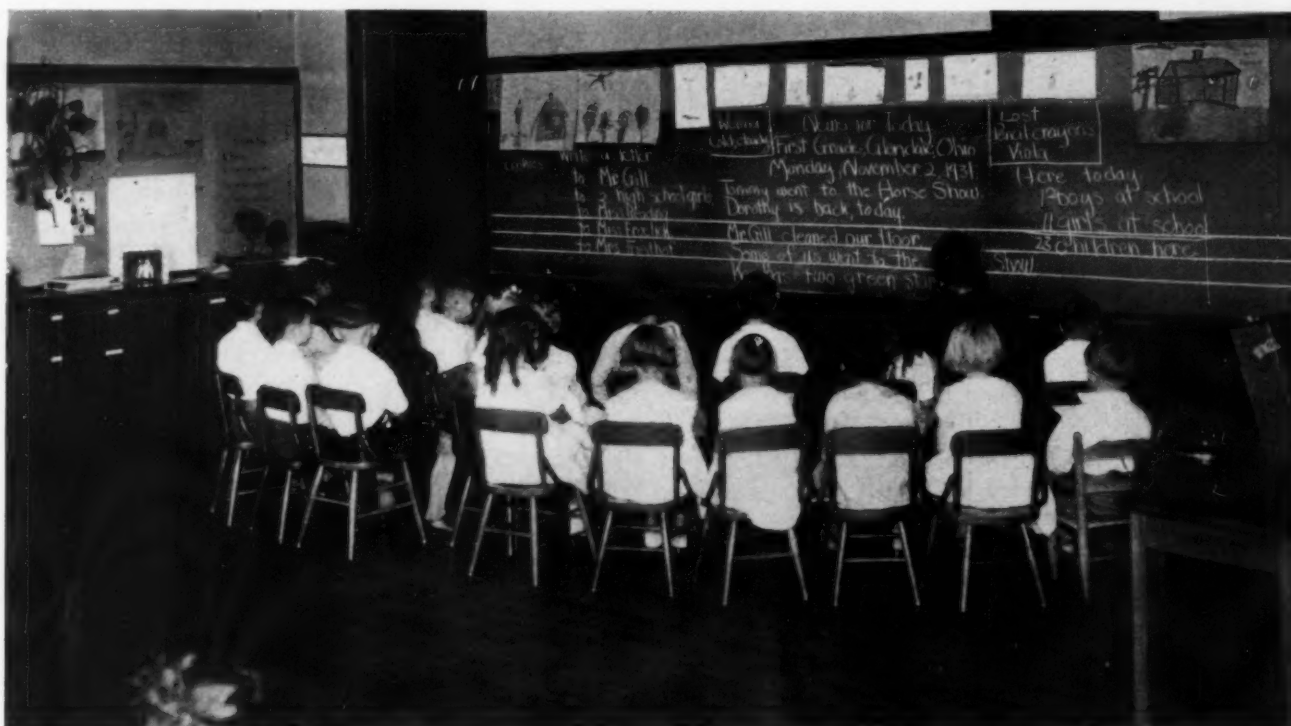 Write a letter
to Mr Gill
to 3 high school girls
to Mrs
to Miss
to Mrs
News for Today
First Grade, Glendale, Ohio
Monday, November 2, 1931.
Tommy went to the Horse Show.
Dorothy is back, today.
Mr Gill cleaned our floor.
Some of us went to the Show
two green
Lost
Pencil crayons
Viola
Here today
12 boys at school
11 girls at school
23 children here